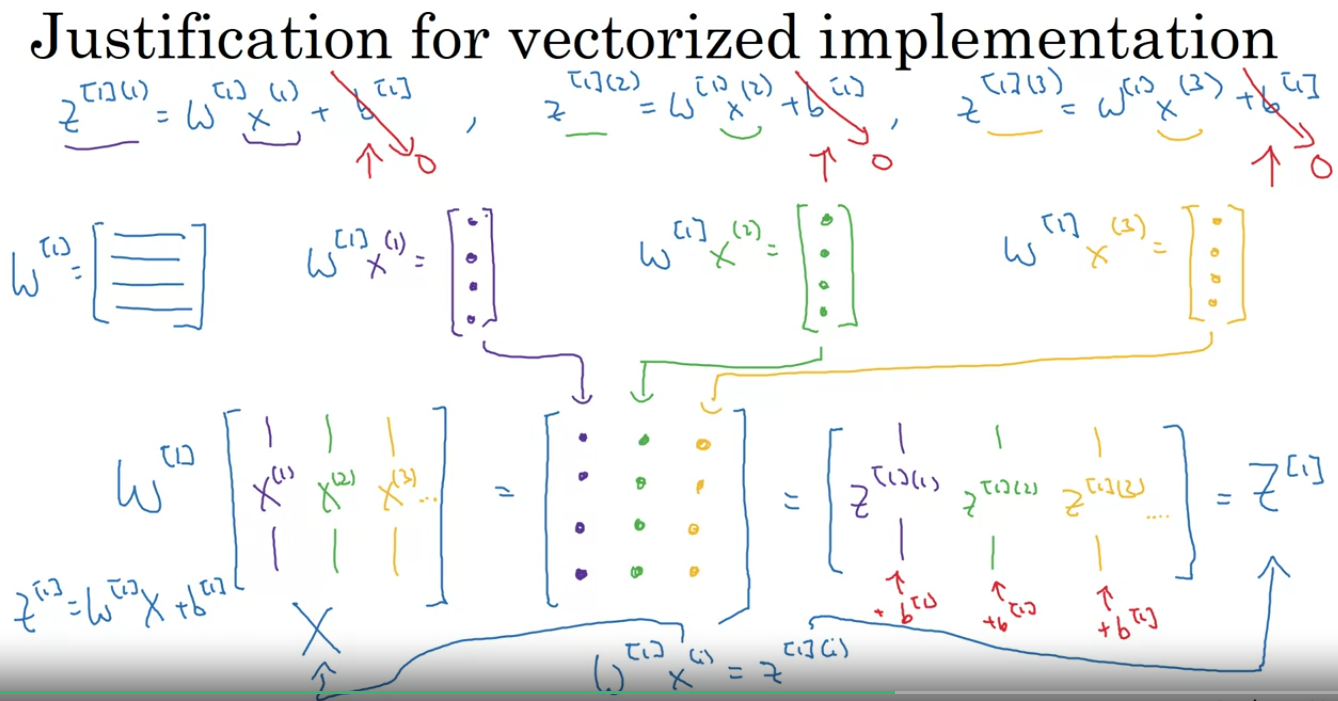 Justification for vectorized implementation
z^{[1](1)} = W^{[1]} x^{(1)} + b^{[1]} , z^{[1](2)} = W^{[1]} x^{(2)} + b^{[1]} , z^{[1](3)} = W^{[1]} x^{(3)} + b^{[1]}
↑ 0 ↑ 0 ↑ 0
W^{[1]} = [ ] W^{[1]} x^{(1)} = [ ] W^{[1]} x^{(2)} = [ ] W^{[1]} x^{(3)} = [ ]
W^{[1]} [ x^{(1)} x^{(2)} x^{(3)} ... ] = [ ] = [ z^{[1](1)} z^{[1](2)} z^{[1](3)} .... ] = Z^{[1]}
z^{[1]} = W^{[1]} X + b^{[1]}
X
+ b^{[1]} + b^{[1]} + b^{[1]}
W^{[1]} x^{(i)} = z^{[1](i)}